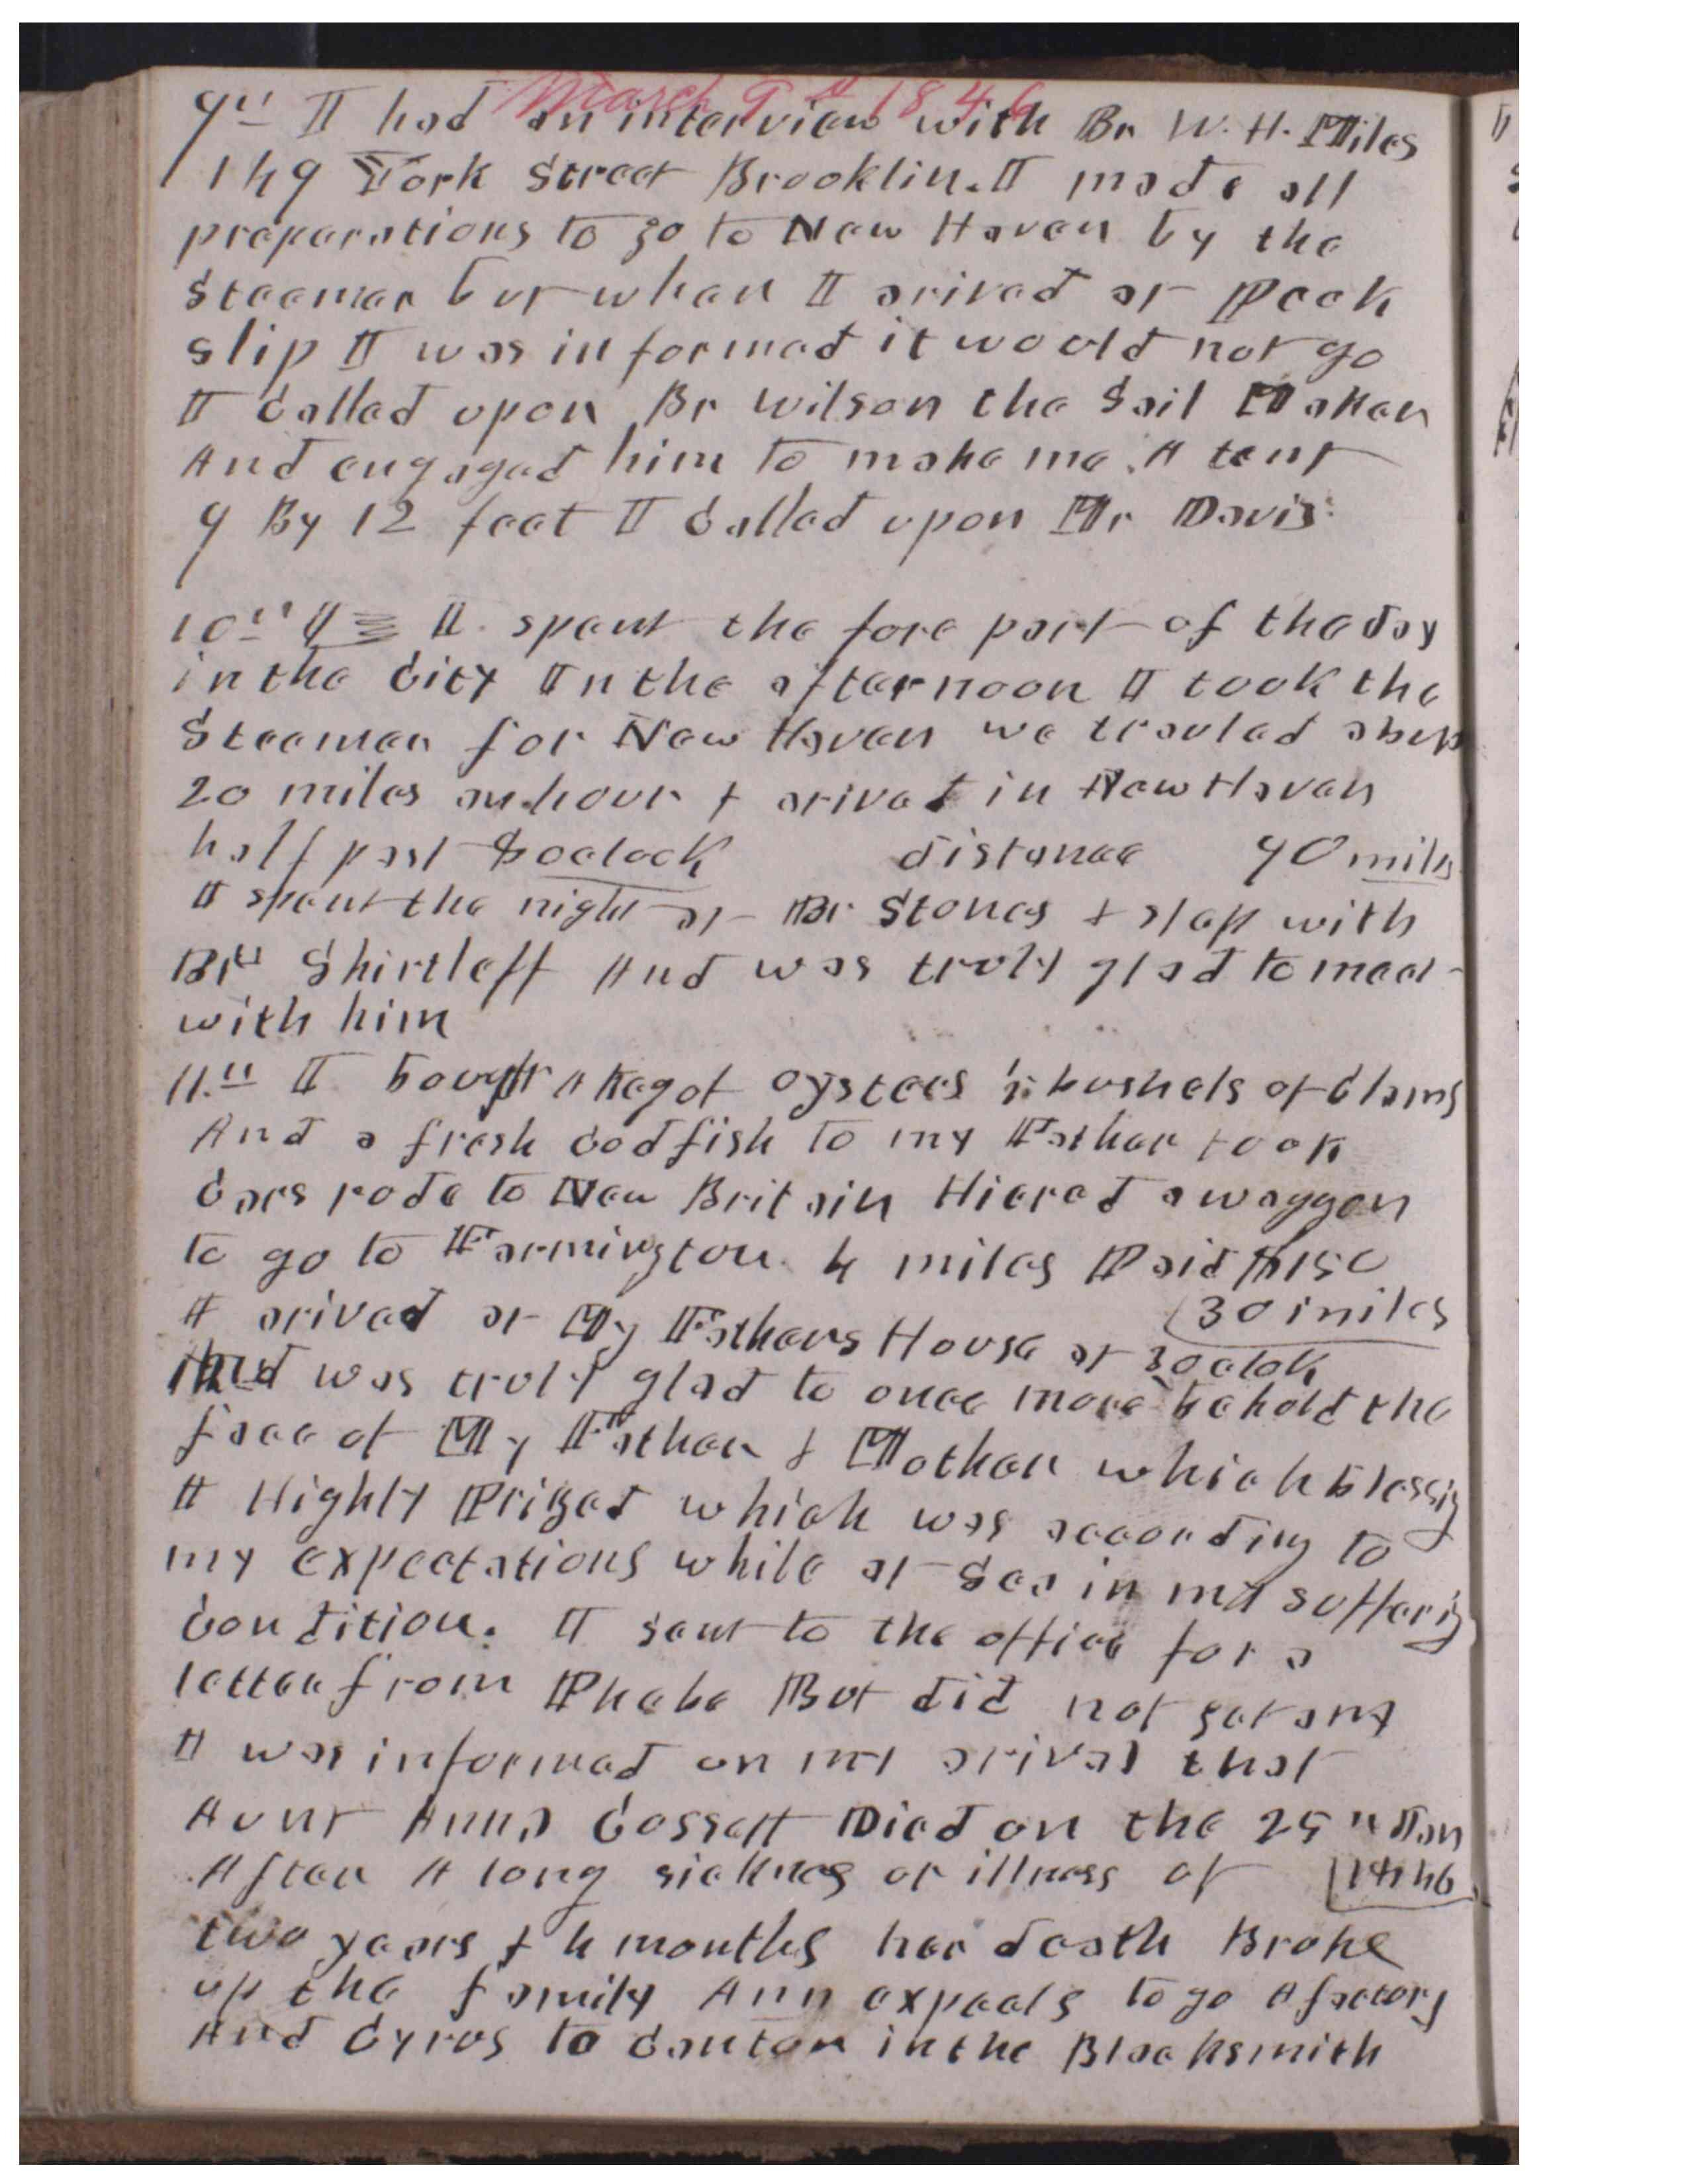 March 9th 1846
9th I had an interview with Br W. H. Miles
149 York Street Brooklin. I made all
preparations to go to New Haven by the
Steemer but when I arived at Peck
slip I was informed it would not go
I Called upon Br Wilson the Sail Maker
And engaged him to make me A tent
9 By 12 feet I Called upon Mr Davis
10th I spent the fore part of the day
in the City In the afternoon I took the
Steemer for New Haven we travled about
20 miles an hour & arived in New Haven
half past 8 oclock distance 90 miles
I spent the night at Br Stones & slep with
Br Shirtleff And was truly glad to meet
with him
11th I bought A Keg of oysters 2 bushels of Clams
And a fresh Codfish to my Father took
Cars rode to New Britain Hiered a waggon
to go to Farmington 4 miles Paid $150
30 miles
I arived at My Fathers House at 3 oclok
And was truly glad to once more behold the
face of My Father & Mother which blessing
I Highly Prized which was according to
my expectations while at Sea in my suffering
Condition. I sent to the office for a
letter from Phebe But did not get any
I was informed on my arival that
Aunt Anna Cossett Died on the 25th Jan
After A long sickness or illness of 1846
two years & 4 months her death Broke
up the family Ann expects to go A factory
And Cyrus to Canton in the Blacksmith